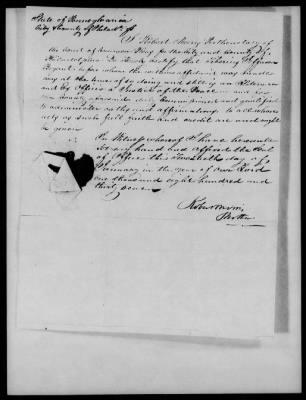 State of Pennsylvania
City & County of Philada ss
I Robert Prothonotary of
the Court of Common Pleas for the City and County of
Philadelphia Do hereby certify that
Esquire before whom the within affidavit was made
was at the time of so doing and still is an Alderman
and Ex Officio a Justice of the Peace in and for
duly Commissioned and qualified
to administer oaths and affirmations & to all whose
acts as such full faith and credit are and ought
to be given
In Witness whereof I have hereunto
set my hand and affixed the Seal
of Office this twelfth day of
January in the year of our Lord
one thousand eight hundred and
thirty
Prothy